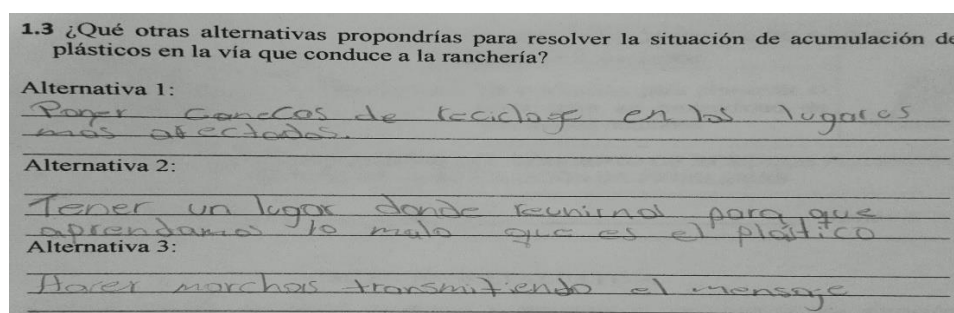 1.3 ¿Qué otras alternativas propondrías para resolver la situación de acumulación de
plásticos en la vía que conduce a la ranchería?
Alternativa 1:
Poner canecas de reciclage en los lugares
mas afectados.
Alternativa 2:
Tener un lugar donde reunirnos para que
aprendamos lo malo que es el plástico
Alternativa 3:
Hacer marchas transmitiendo el mensaje